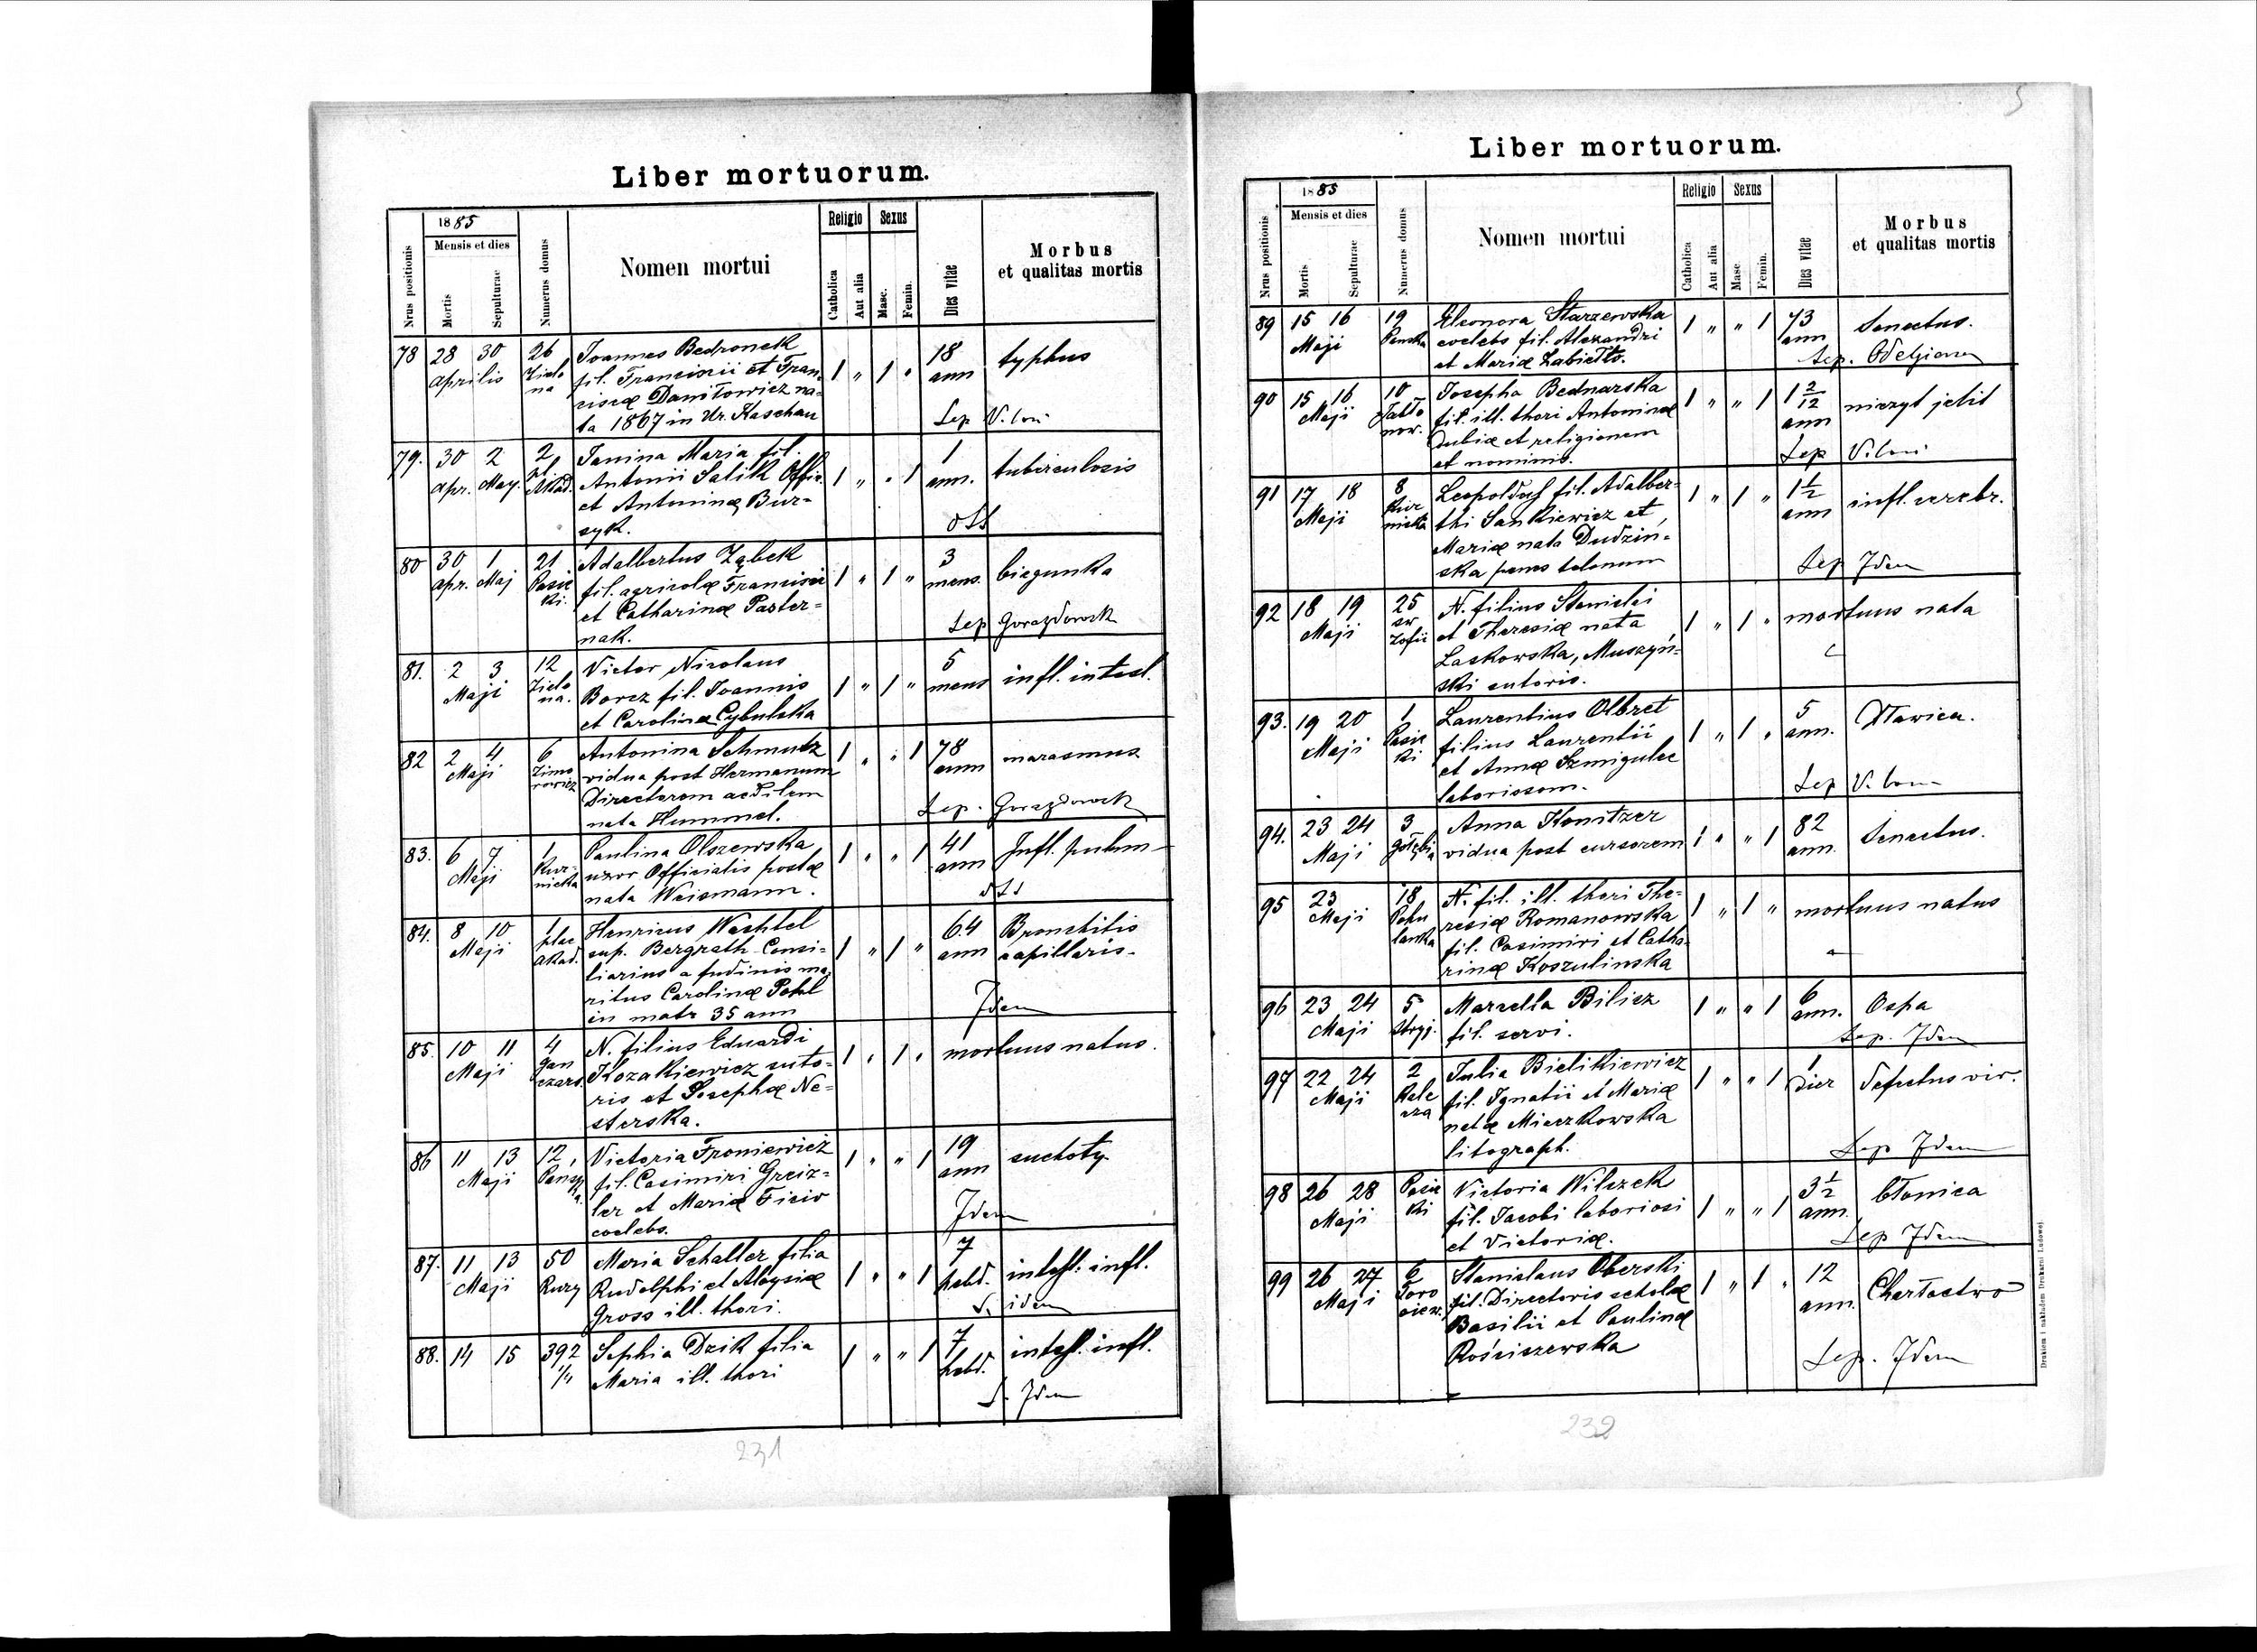 Liber mortuorum.
1885
Mensis et dies
Nrus positionis
Mortis
Sepulturae
Numerus domus
Nomen mortui
Religio
Sexus
Catholica
Aut alia
Masc.
Femin.
Dies vitae
Morbus
et qualitas mortis
78 28 30 26 Joannes Bedronek 1 " 1 " 18 typhus
aprilis Zielo fil. Francisci et Fran- ann
na ciscæ Daniłowicz na-
ta 1867 in Ur. Kaschau Sep
79. 30 2 2 Janina Maria fil. 1 " " 1 1 tuberculosis
apr. May. pl. Antonii Salik Offic. ann.
Akad. et Antoninæ Bur-
syk.
80 30 1 21 Adalbertus Ząbek 1 " 1 " 3 biegunka
apr. Maj Pasie fil. agricolæ Francisci mens.
ki. et Catharinæ Paster=
nak. Sep Gorazdowsk
81. 2 3 12 Victor Nicolaus 1 " 1 " 5 infl. intest.
Maji Zielo Borcz fil. Joannis mens
na. et Carolinæ Cybulska
82 2 4 6 Antonina Schmutz 1 " " 1 78 marasmus
Maji Zimo vidua post Hermanum ann
rowicz Directorem aedilem
nata Hummel. Sep. Gorazdowsk
83. 6 7 1 Paulina Olszewska 1 " " 1 41 Infl. pulm
Maji Kur- uxor Officialis postæ ann
nicka nata Weismann.
84. 8 10 1 Henricus Wachtel 1 " 1 " 64 Bronchitis
Maji plac sup. Bergrath Consi= ann capillaris.
Akad. liarius a fudinis ma
ritus Carolinæ Pohl
in matr 35 ann Idem
85. 10 11 4 N. filius Eduardi 1 " 1 " mortuus natus.
Maji gan Kozakiewicz suto=
czars. ris et Josephæ Ne=
sterska.
86 11 13 12 Victoria Froniewicz 1 " " 1 19 suchoty
Maji fil. Casimiri Greiz= ann
ler et Mariæ Ficio
coelebs. Idem
87. 11 13 50 Maria Schaller filia 1 " " 1 7 intest. infl.
Maji Rury Rudolphi et Aloysiæ hebd.
Gross ill. thori. S. idem
88. 14 15 392 Sophia Dzik filia 1 " " 1 7 intest. infl.
1/4 Maria ill. thori hebd.
S. Idem
231
Liber mortuorum.
1885
Mensis et dies
Nrus positionis
Mortis
Sepulturae
Numerus domus
Nomen mortui
Religio
Sexus
Catholica
Aut alia
Masc.
Femin.
Dies vitae
Morbus
et qualitas mortis
89 15 16 19 Eleonora Starzewska 1 " " 1 73 Senectus.
Maji Panska coelebs fil. Alexandri ann
et Mariæ Zabiełło. Sep.
90 15 16 10 Josepha Bednarska 1 " " 1 1 2/12 nieżyt jelit
Maji Jabło fil. ill. thori Antoninæ ann
now. dubiæ et religionem
et nominis. Sep
91 17 18 8 Leopoldus fil. Adalber= 1 " 1 " 1 1/2 infl. cerebr.
Maji Kur thi Sankiewicz et ann
nicka Mariæ nata Dudzin=
ska penes telonum Sep Idem
92 18 19 25 N. filius Stanislai 1 " 1 " mortuus nata
Maji sw et Theresiæ nata
Zofii Laskowska, Muszyń=
ski sutoris.
93. 19 20 1 Laurentius Olbret 1 " 1 " 5 Dławica.
Maji Pasie filius Laurentii ann.
ki et Annæ Szmigulec
laboriosom. Sep
94. 23 24 3 Anna Konitzer 1 " " 1 82 Senectus.
Maji Gołębia vidua post cursorem ann.
95 23 18 N. fil. ill. thori The= 1 " 1 " mortuus natus
Maji Pohu resiæ Romanowska
lanka fil. Casimiri et Catha-
rinæ Koszulinska
96 23 24 5 Marcella Bilicz 1 " " 1 6 Ospa
Maji Stryj. fil. servi. ann.
Sep. Idem
97 22 24 2 Julia Bielikiewicz 1 " " 1 1 Defectus vir.
Maji Kale fil. Ignatii et Mariæ dier
cza natæ Mieczkowska
litograph. Sep Idem
98 26 28 Pasie Victoria Wilczek 1 " " 1 3 1/2 błonica
Maji ki fil. Jacobi laboriosi ann.
et Victoriæ. Sep Idem
99 26 27 6 Stanislaus Oberski 1 " 1 " 12 Charłactwo
Maji Toro fil. Directoris scholæ ann.
siew. Basilii et Paulinæ
Rościszewska
Sep. Idem
Drukiem i nakładem Drukarni Ludowej
232